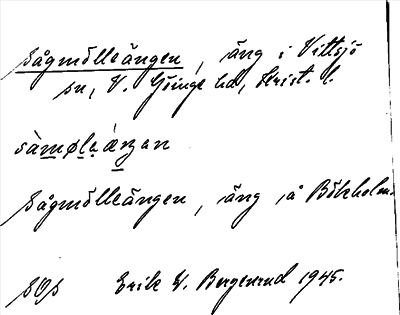 Sågmölleängen, äng i Vittsjö
sn, V. Göinge hd, Krist. l.
sàmøleǽŋan
Sågmölleängen, äng på Bökholm.
SOS Erik V. Bergstrand 1945.